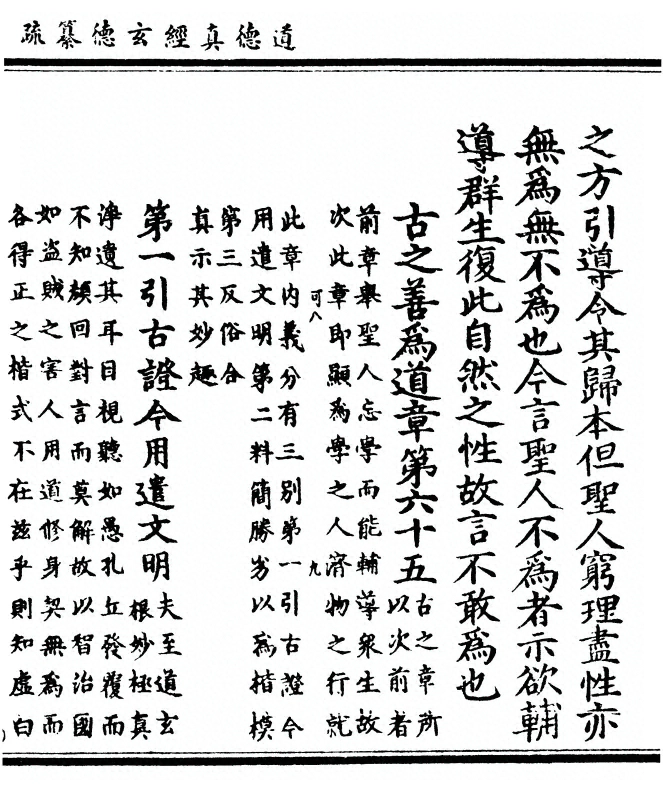 道德真經玄德纂疏
之方引導令其歸本但聖人窮理盡性亦
無為無不為也今言聖人不為者示欲輔
導群生復此自然之性故言不敢為也
古之善為道章第六十五
古之章所
以次前者
前章舉聖人忘學而能輔導眾生故
次此章即顯為學之人濟物之行就
可八
九
此章內義分有三別第一引古證今
用遣文明第二料簡勝劣以為楷模
第三反俗合
真示其妙趣
第一引古證今用遣文明
夫至道玄
根妙極真
淨遺其耳目視聽如愚孔丘發覆而
不知顏回對言而莫解故以智治國
如盜賊之害人用道修身契無為而
各得正之楷式不在茲乎則知虛白